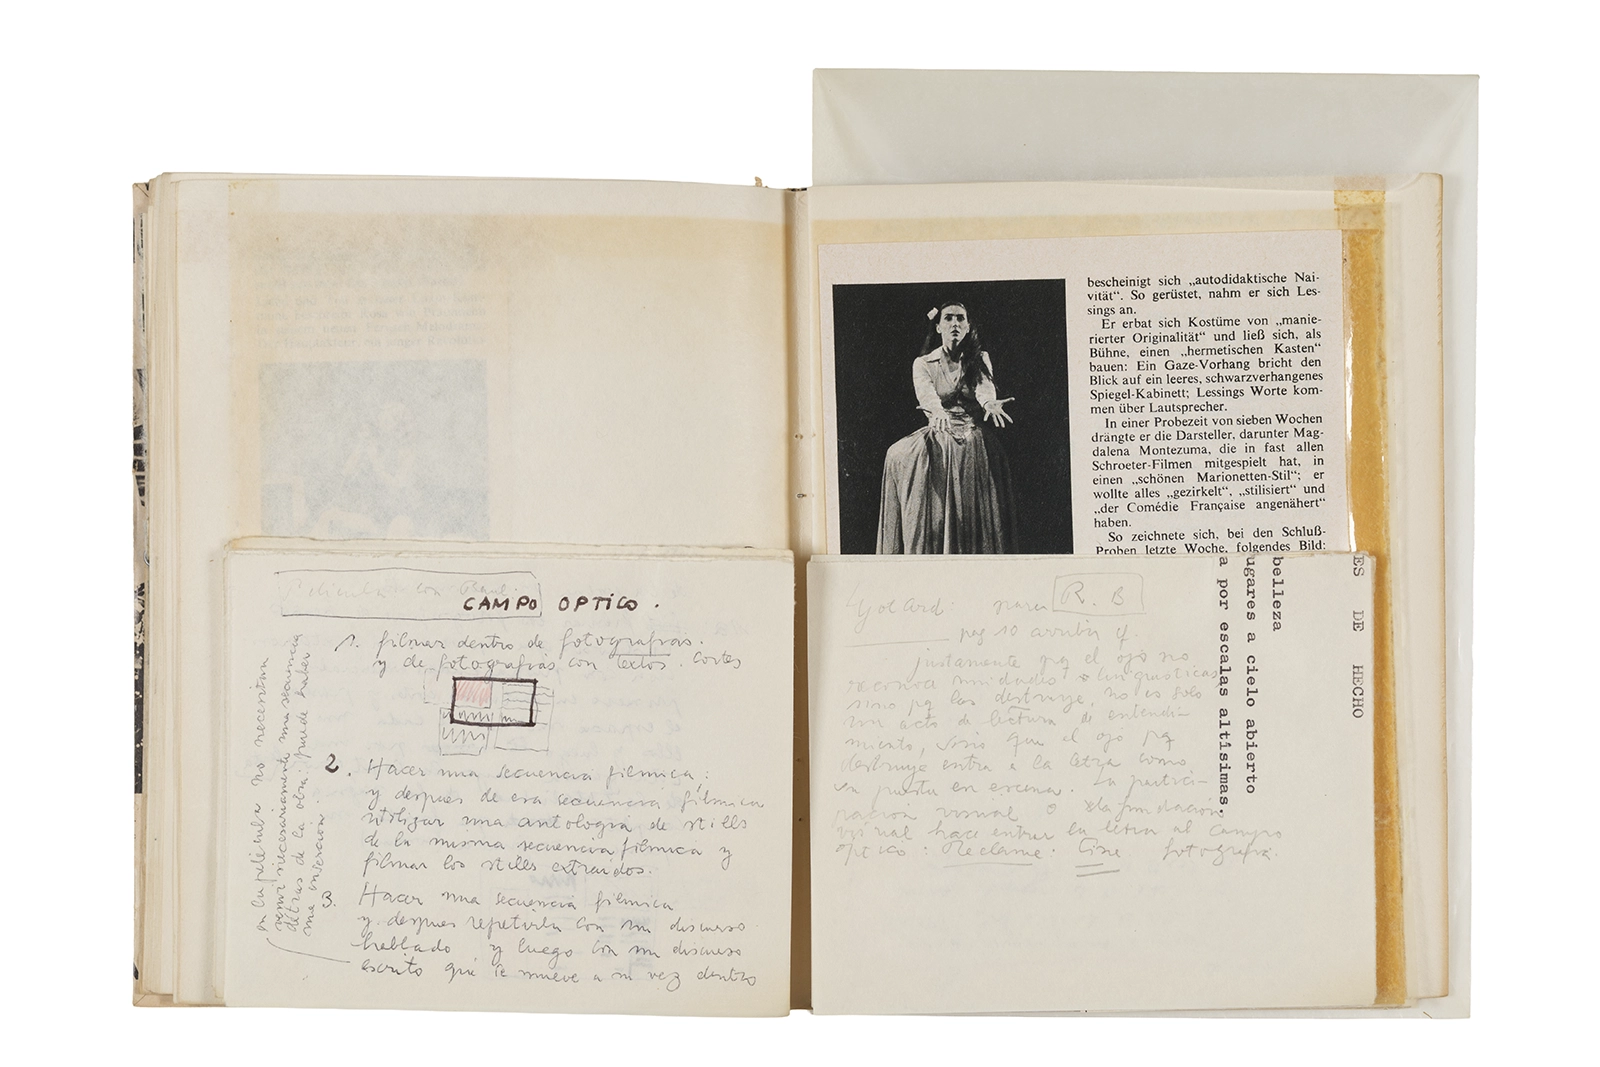 Película con Raul.
CAMPO OPTICO.
1. filmar dentro de fotografías.
y de fotografías con textos. cortes
2. Hacer una secuencia filmica:
y despues de esa secuencia filmica
utilizar una antologia de stills
de la misma secuencia filmica y
filmar los stills extraidos.
3. Hacer una secuencia filmica
y despues repetirla con un discurso
hablado y luego con un discurso
escrito que se mueve a su vez dentro
en la pelicula no necesitan
venir necesariamente una secuencia
detras de la otra: puede haber
una insercion.
bescheinigt sich „autodidaktische Nai-
vität“. So gerüstet, nahm er sich Les-
sings an.
Er erbat sich Kostüme von „manie-
rierter Originalität“ und ließ sich, als
Bühne, einen „hermetischen Kasten“
bauen: Ein Gaze-Vorhang bricht den
Blick auf ein leeres, schwarzverhangenes
Spiegel-Kabinett; Lessings Worte kom-
men über Lautsprecher.
In einer Probezeit von sieben Wochen
drängte er die Darsteller, darunter Mag-
dalena Montezuma, die in fast allen
Schroeter-Filmen mitgespielt hat, in
einen „schönen Marionetten-Stil“; er
wollte alles „gezirkelt“, „stilisiert“ und
„der Comédie Française angenähert“
haben.
So zeichnete sich, bei den Schluß-
Proben letzte Woche, folgendes Bild:
ES DE HECHO
belleza
ugares a cielo abierto
a por escalas altísimas.
Godard: para R. B
pag 10 arriba
justamente pq el ojo no
reconoce unidades linguisticas
sino pq las destruye, no es solo
un acto de lectura de entendi-
miento, sino que el ojo pq
destruye entra a la letra como
en puesta en escena. La partici-
pación visual o la fundación
visual hace entrar la letra al campo
optico: Reclame: Cine. fotografía.